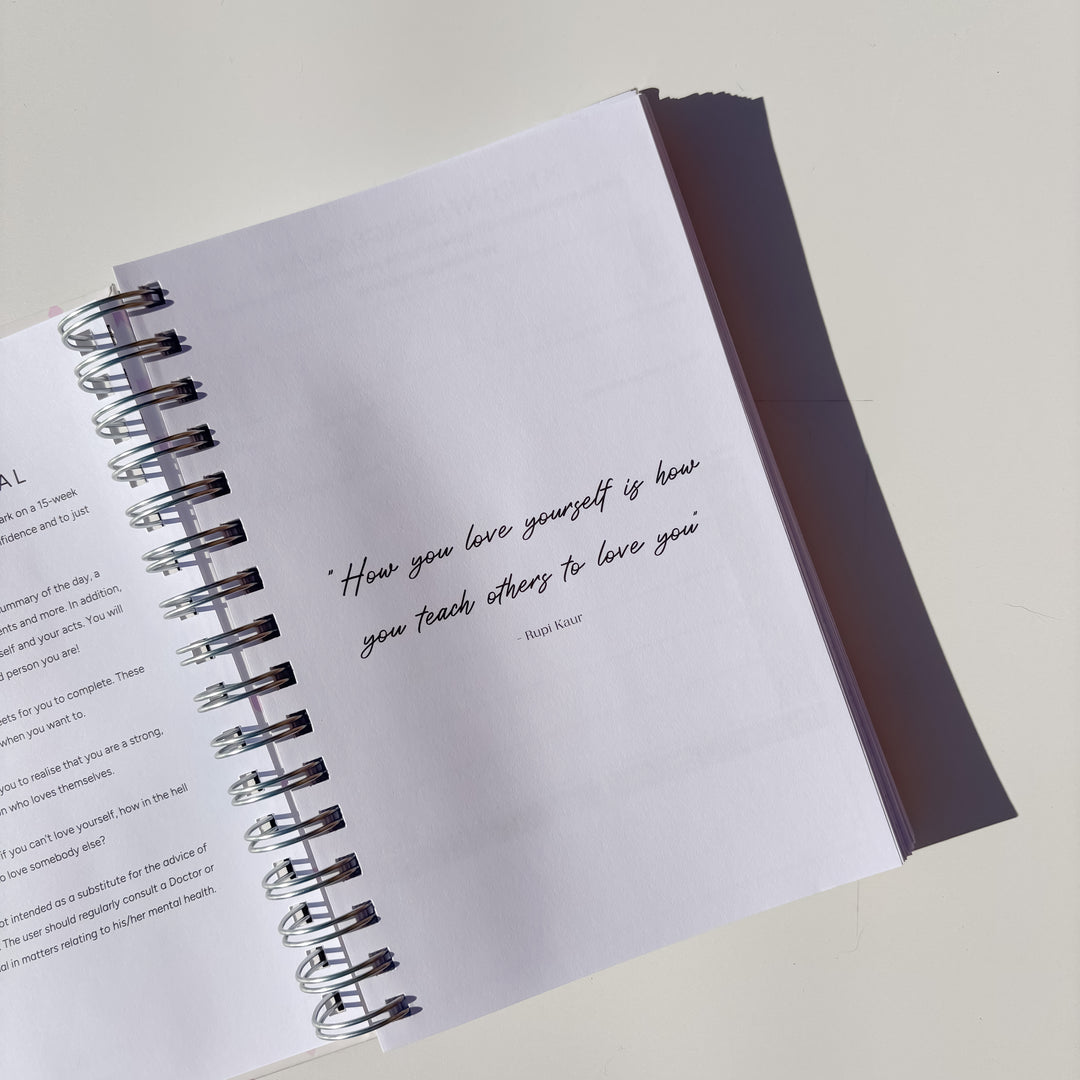 AL
ark on a 15-week
fidence and to just
ummary of the day, a
ents and more. In addition,
self and your acts. You will
d person you are!
eets for you to complete. These
when you want to.
you to realise that you are a strong,
n who loves themselves.
if you can't love yourself, how in the hell
o love somebody else?
ot intended as a substitute for the advice of
. The user should regularly consult a Doctor or
al in matters relating to his/her mental health.
"How you love yourself is how
you teach others to love you"
- Rupi Kaur